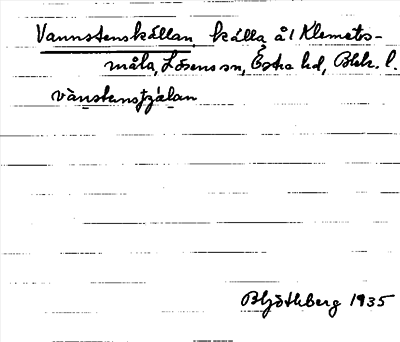 Vannstenskällan källa å 1 Klemets-
måla, Lösens sn, Östra hd, Blek. l.
vànstensʃjälan
BHjöthberg 1935